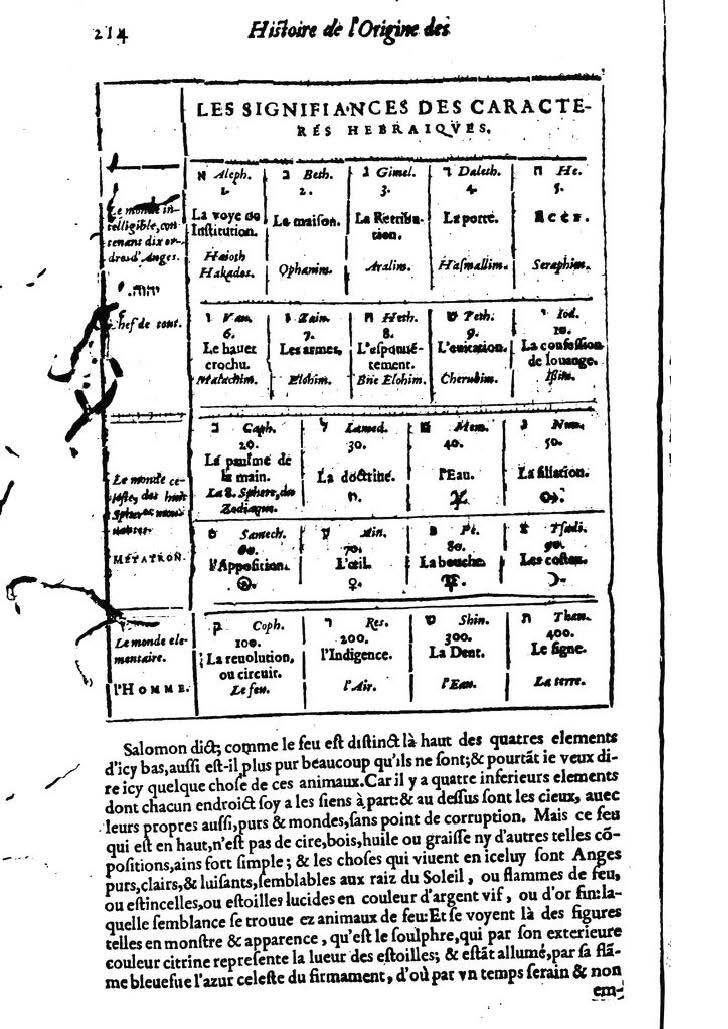 214 Histoire de l'Origine des
LES SIGNIFIANCES DES CARACTE-
RES HEBRAIQVES.
Le monde in-
telligible, con
tenant dix or-
dres d'Anges.
יהוה.
Chef de tout.
א Aleph. ב Beth. ג Gimel. ד Daleth. ה He.
1. 2. 3. 4. 5.
La voye de La maison. La Retribu- La porte.
Institution. tion.
Haioth Ophanim. Aralim. Hasmallim. Seraphim.
Hakados.
ו Vau. ז Zain. ח Heth. ט Teth. י Iod.
6. 7. 8. 9. 10.
Le havet Les armes. L'espouuë- La confession
crochu. tement. de louange.
Malachim. Elohim. Bne Elohim. Cherubim. Issim.
Le monde ce-
leste, des huit
METATRON.
כ Caph. ל Lamed. מ Mem. נ Nun.
20. 30. 40. 50.
La paulme de La doctrine. l'Eau. La filiation.
la main.
La 8. Sphere, du ♄ ♃ ☉
Zodiaque.
ס Samech. ע Ain. פ Pé. צ Tsadi.
60. 70. 80. 90.
l'Apposition. L'œil. La bouche. Les costez.
♀. ☽
Le monde ele-
mentaire.
l'HOMME.
ק Coph. ר Res. ש Shin. ת Thau.
100. 200. 300. 400.
La reuolution, l'Indigence. La Dent. Le signe.
ou circuit.
Le feu. l'Air. l'Eau. La terre.
Salomon dict; comme le feu est distinct là haut des quatres elements
d'icy bas, aussi est-il plus pur beaucoup qu'ils ne sont; & pourtāt ie veux di-
re icy quelque chose de ces animaux. Car il y a quatre inferieurs elements
dont chacun endroict soy a les siens à part: & au dessus sont les cieux, auec
leurs propres aussi, purs & mondes, sans point de corruption. Mais ce feu
qui est en haut, n'est pas de cire, bois, huile ou graisse ny d'autres telles cō-
positions, ains fort simple; & les choses qui viuent en iceluy sont Anges
purs, clairs, & luisants, semblables aux raiz du Soleil, ou flammes de feu,
ou estincelles, ou estoilles lucides en couleur d'argent vif, ou d'or fin: la-
quelle semblance se trouue ez animaux de feu: Et se voyent là des figures
telles en monstre & apparence, qu'est le soulphre, qui par son exterieure
couleur citrine represente la lueur des estoilles; & estāt allumé, par sa flā-
me bleuesue l'azur celeste du firmament, d'où par vn temps serain & non
em-